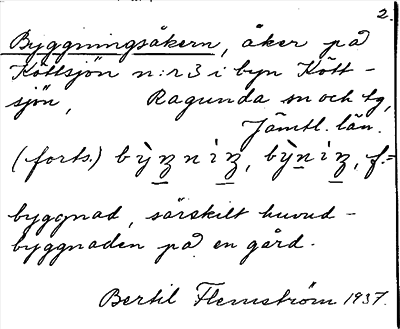 2.
Byggningsåkern, åker på
Köttsjön n:r 3 i byn Kött-
sjön, Ragunda sn och tg,
Jämtl. län.
(forts.) bỳn̲nìn̲, bỳn̲ìn̲, f.=
byggnad, särskilt huvud-
byggnaden på en gård.
Bertil Flemström 1937.